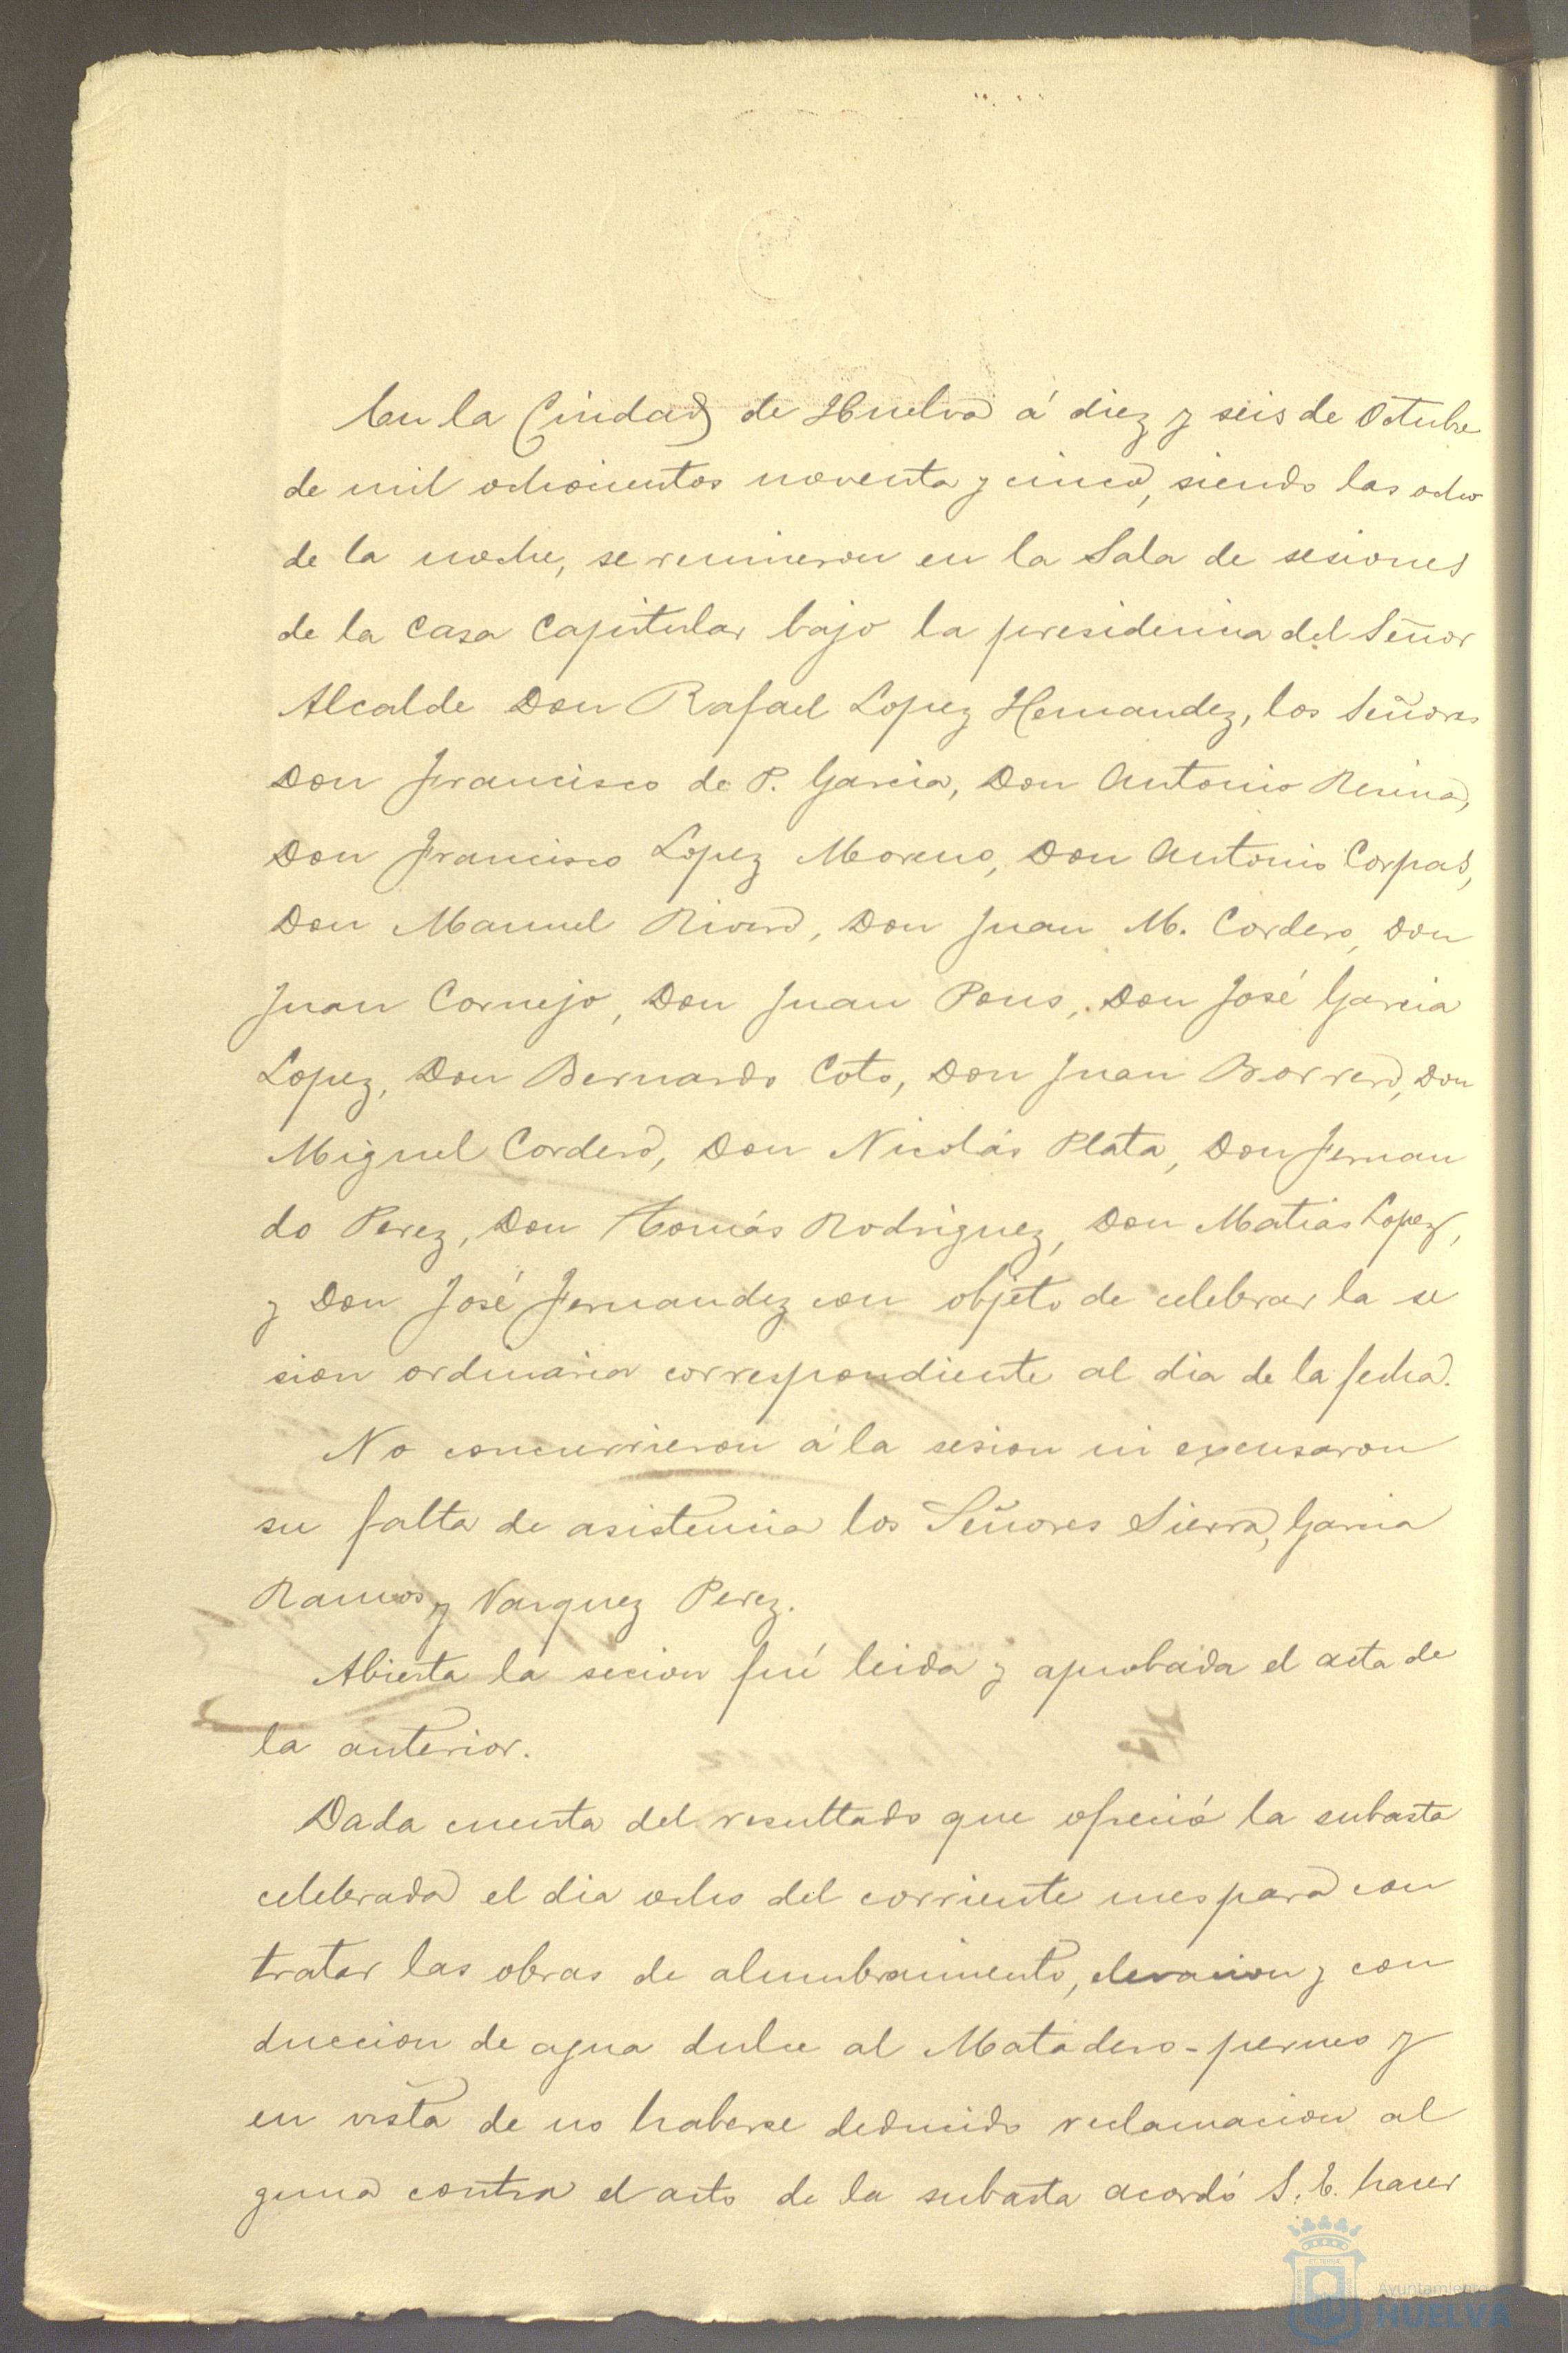 En la Ciudad de Huelva á diez y seis de Octubre
de mil ochocientos noventa y cinco, siendo las ocho
de la noche, se reunieron en la Sala de sesiones
de la Casa Capitular bajo la presidencia del Señor
Alcalde Don Rafael Lopez Hernandez, los Señores
Don Francisco de P. Garcia, Don Antonio Resina,
Don Francisco Lopez Moreno, Don Antonio Corpas,
Don Manuel Rivero, Don Juan M. Cordero, Don
Juan Cornejo, Don Juan Pons, Don José Garcia
Lopez, Don Bernardo Coto, Don Juan Borrero, Don
Miguel Cordero, Don Nicolás Plata, Don Fernan
do Perez, Don Tomás Rodriguez, Don Matias Lopez,
y Don José Fernandez con objeto de celebrar la se
sion ordinaria correspondiente al dia de la fecha.
No concurrieron á la sesion ni excusaron
su falta de asistencia los Señores Sierra, Garcia
Ramos y Vazquez Perez.
Abierta la secion fué leida y aprobada el acta de
la anterior.
Dada cuenta del resultado que ofreció la subasta
celebrada el dia ocho del corriente mes para con
tratar las obras de alumbramiento, elevacion y con
duccion de agua dulce al Matadero-
en vista de no haberse deducido reclamacion al
guna contra el acto de la subasta acordó S. E. hacer
Ayuntamiento
HUELVA